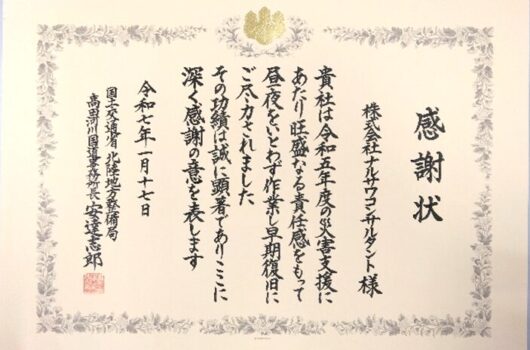 感謝状
株式会社ナルサワコンサルタント 様
貴社は令和五年度の災害支援に
あたり旺盛なる責任感をもって
昼夜をいとわず作業し早期復旧に
ご尽力されました
その功績は誠に顕著でありここに
深く感謝の意を表します
令和七年一月十七日
国土交通省 北陸地方整備局
高田河川国道事務所長 安達志郎